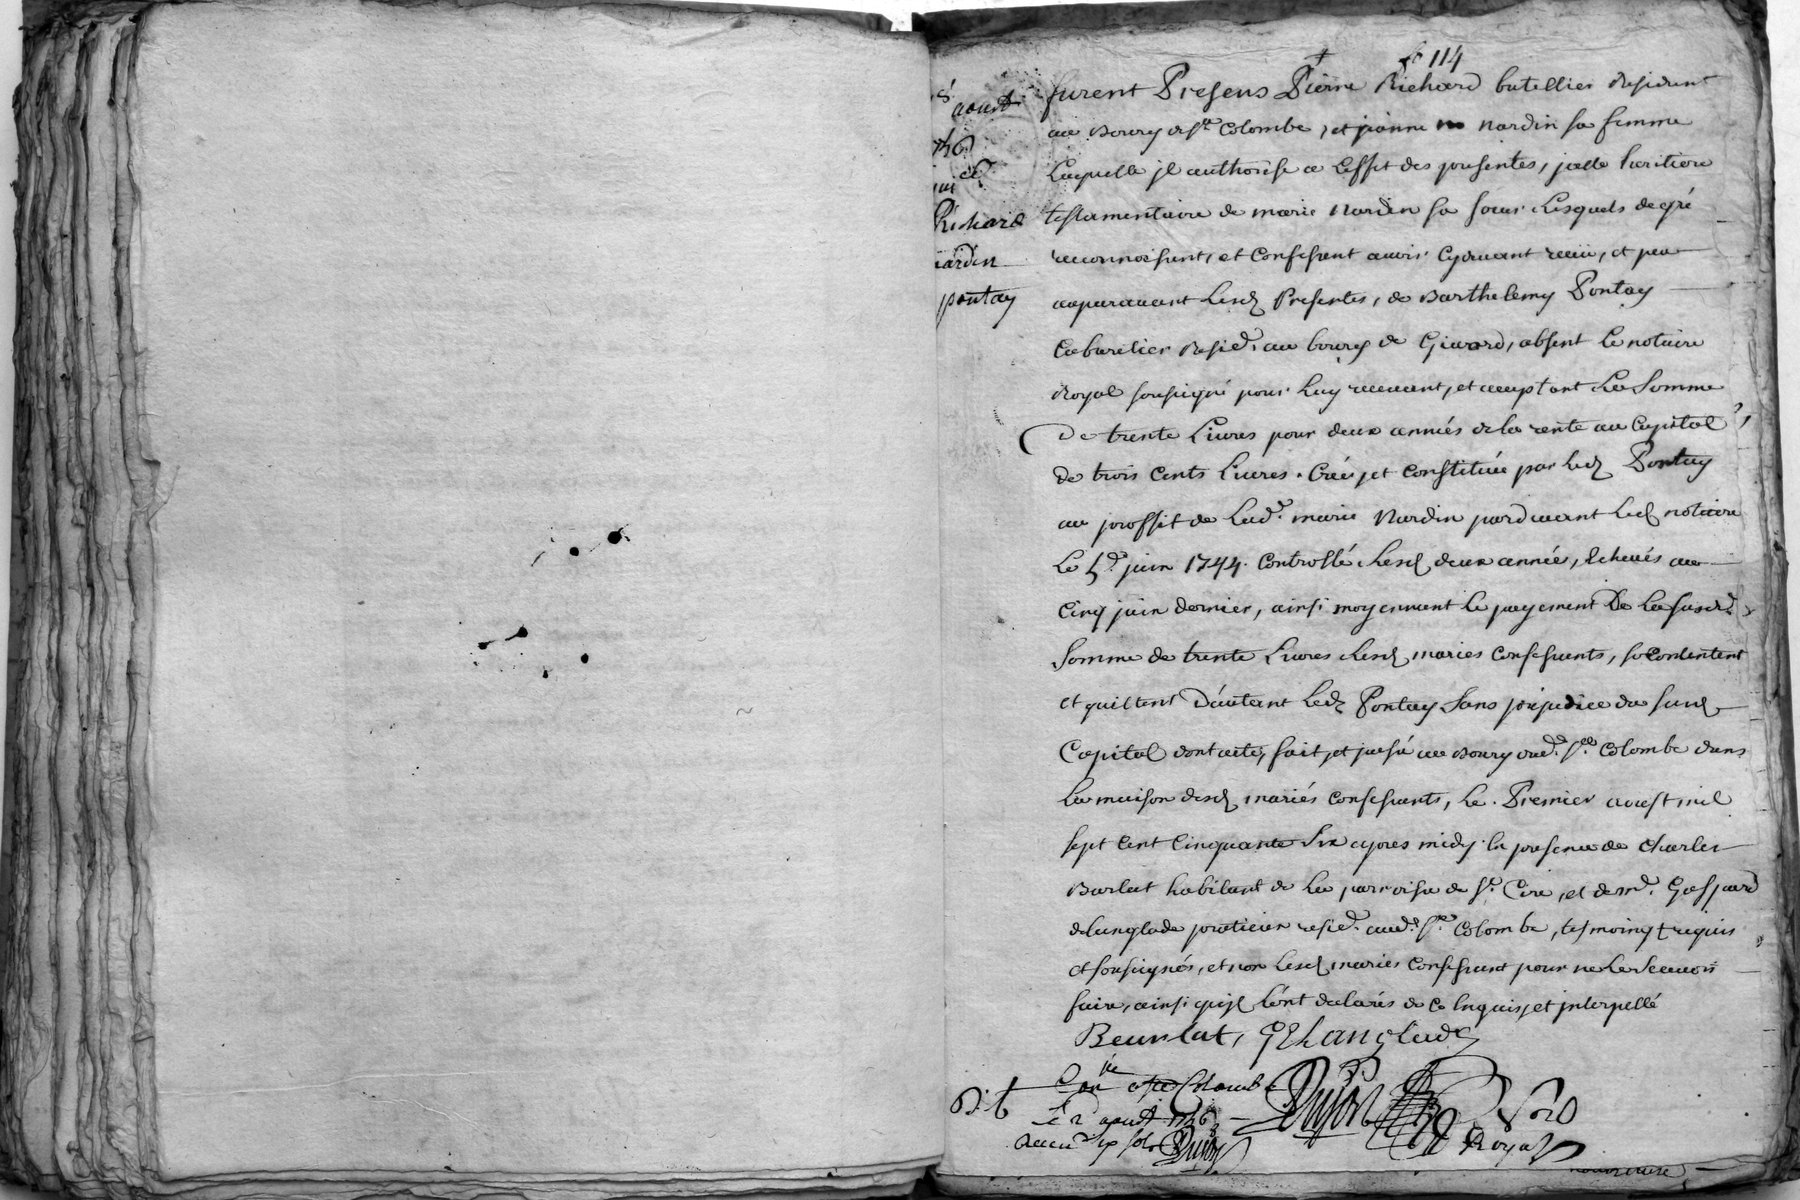 114
furent Presens Pierre Richard batellier resident
au Bourg de Ste Colombe, et jeanne Nardin sa femme
Laquelle jl authorise a l'effet des presentes, jcelle heritiere
testamentaire de marie Nardin sa sœur. Lesquels de gré
reconnoissent, et Confessent auoir Cydeuant receu, et peu
auparauant Lesd Presentes, de Barthelemy Pontay
Cabaretier Resid. au bourg de Giurard, absent Le notaire
Royal soussigné pour Luy receuant, et acceptant La Somme
De trente Liures pour deux années de la rente au Capital
de trois Cents Liures. Créé, et Constituée par Led Pontay
au proffit de Lad. marie Nardin pardeuant Led notaire
Le 5e juin 1744. Controllé. Lesd deux année, Echeués au
Cinq juin dernier, ainsi moyennant Le payement De La susd.
Somme de trente Liures Lesd mariés Confessants, se Contentent
et quittent D'autant Led Pontay Sans prejudice du susd
Capital dont acte, fait, et passé au Bourg dud. Ste Colombe dans
La maison desd mariés Confessants, Le Premier aoust mil
sept Cent Cinquante Six apres midy En presence de Charles
Barlat habitant de La parroisse de St. Cire, et de mr. Gaspard
delanglade praticien resid. aud. Ste Colombe, tesmoings requis
et soussignés, et non Lesd mariés Confessant pour ne Le Scauoir
faire, ainsi qu'jl L'ont declarés de Ce Enquis, et jnterpellé
Beurlat, GDLanglade
aoust
Richard
nardin
pontay
Con a Ste Colombe
Le 2 aoust 1756
Recu sols Dujon
Dujon
Royal